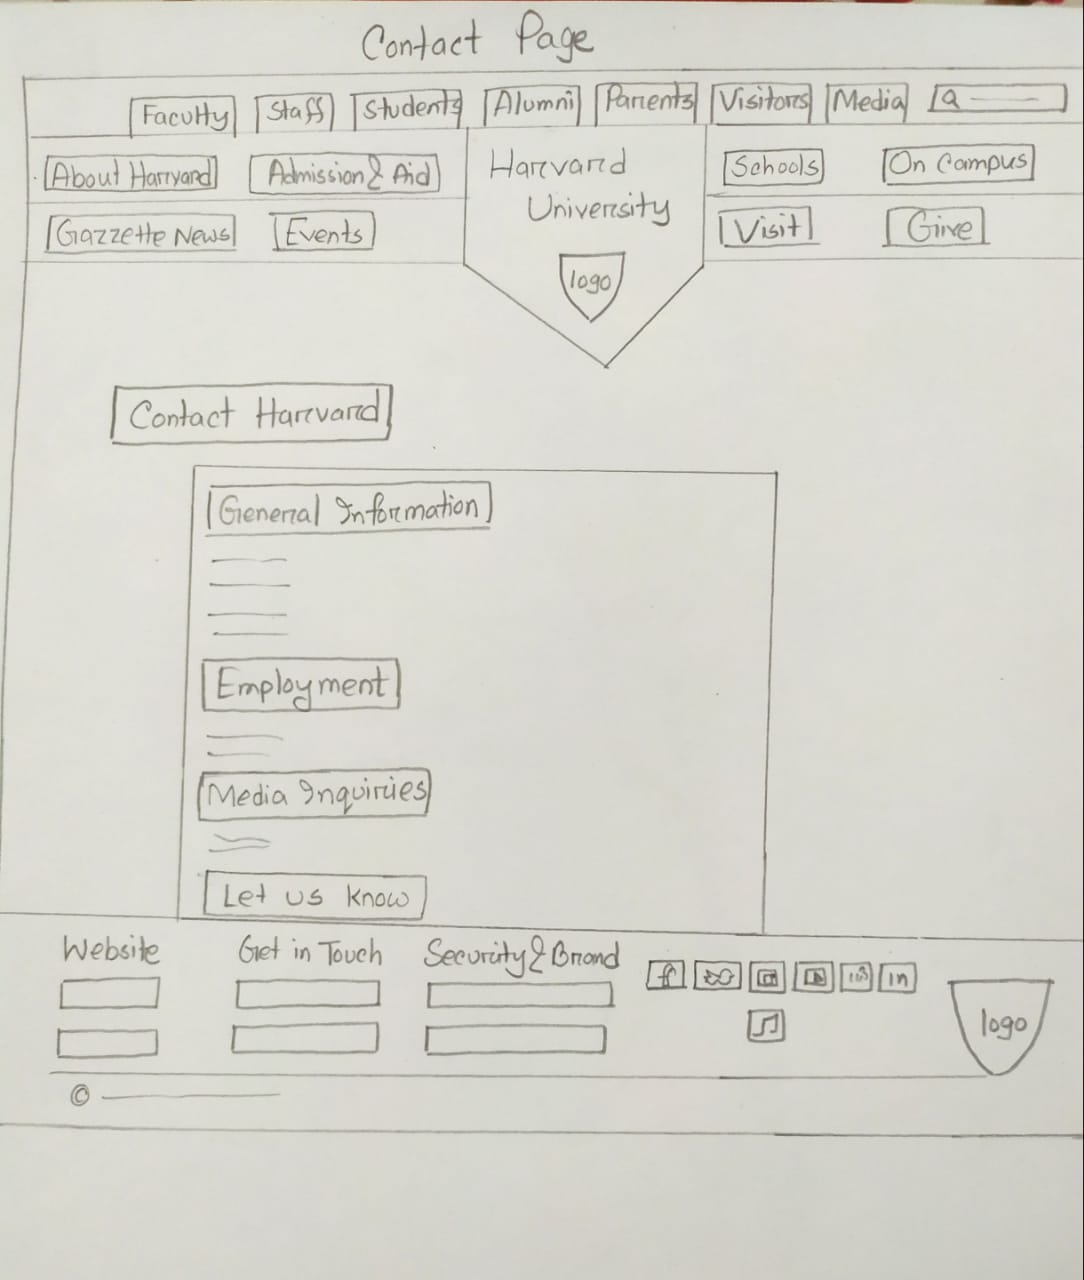 Contact Page
Faculty Staff Students Alumni Parents Visitors Media
About Harvard Admission & Aid Harvard University Schools On Campus
Gazzette News Events Visit Give
logo
Contact Harvard
General Information
Employment
Media Inquiries
Let us know
Website Get in Touch Security & Brand
f in
logo
©